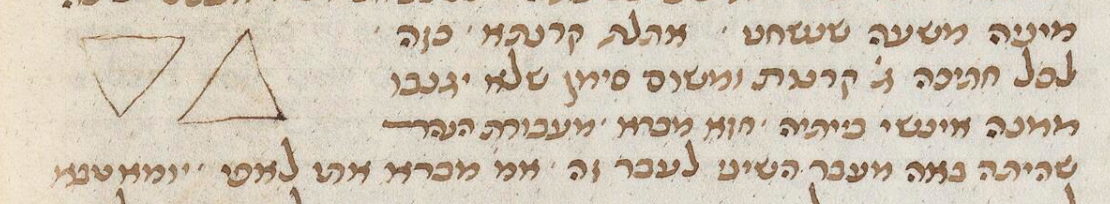 מיניה משעה שנשחט · אתלת קרנתא · כזה ·
לכל חתיכה ג' קרנות ומשום סימן שלא יגנבו
ממנה אינשי ביתיה · חזא מברא · מעבורת הנהר
שהיתה באה מעבר השיני לעבר זה · אמ' מברא אתי לאפי · יומא טבא